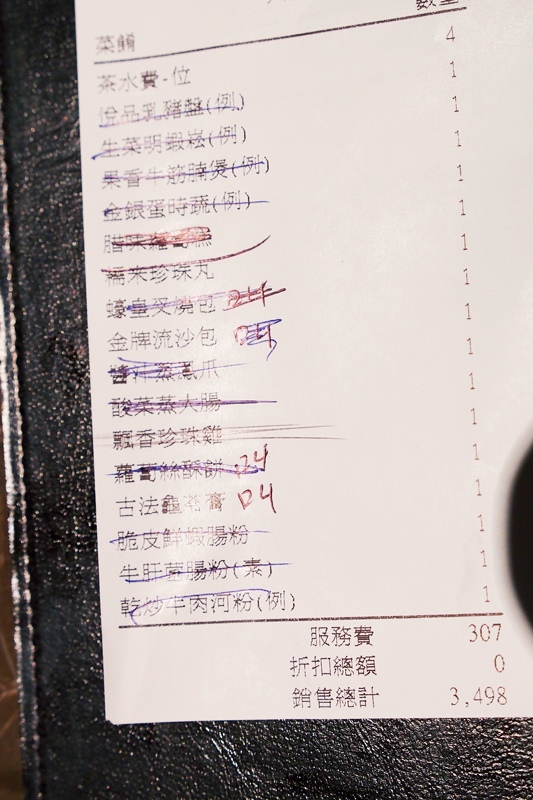 數量
菜餚
茶水費-位 4
悅品乳豬盤(例) 1
生菜明蝦崧(例) 1
果香牛筋腩煲(例) 1
金銀蛋時蔬(例) 1
腊味蘿蔔糕 1
糯米珍珠丸 1
蠔皇叉燒包 1
金牌流沙包 1
醬汁蒸鳳爪 1
酸菜蒸大腸 1
飄香珍珠雞 1
蘿蔔絲酥餅 04 1
古法龜苓膏 04 1
脆皮鮮蝦腸粉 1
牛肝菌腸粉(素) 1
乾炒牛肉河粉(例) 1
服務費 307
折扣總額 0
銷售總計 3,498